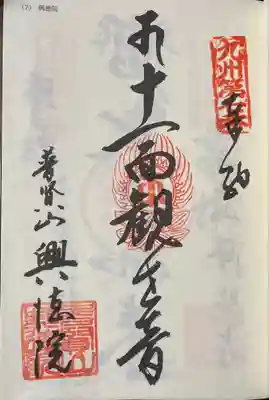 (7) 興徳院
九州第
奉納
十一面観世音
普賢山 興徳院